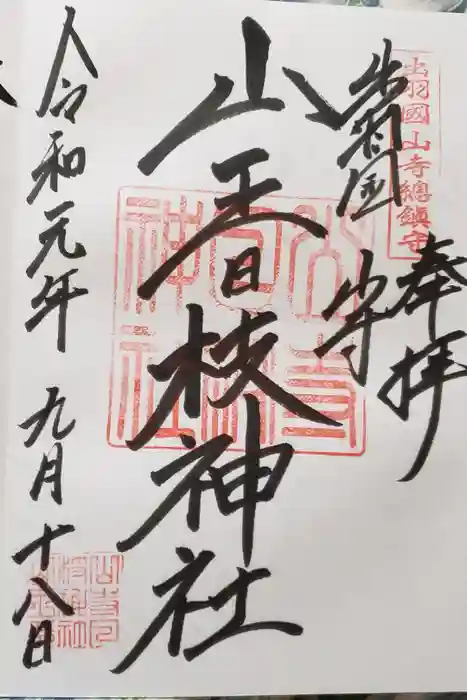 出羽國山寺總鎮守
奉拝
出羽国
山寺
山王日枝神社
山寺日枝神社
令和元年 九月十八日